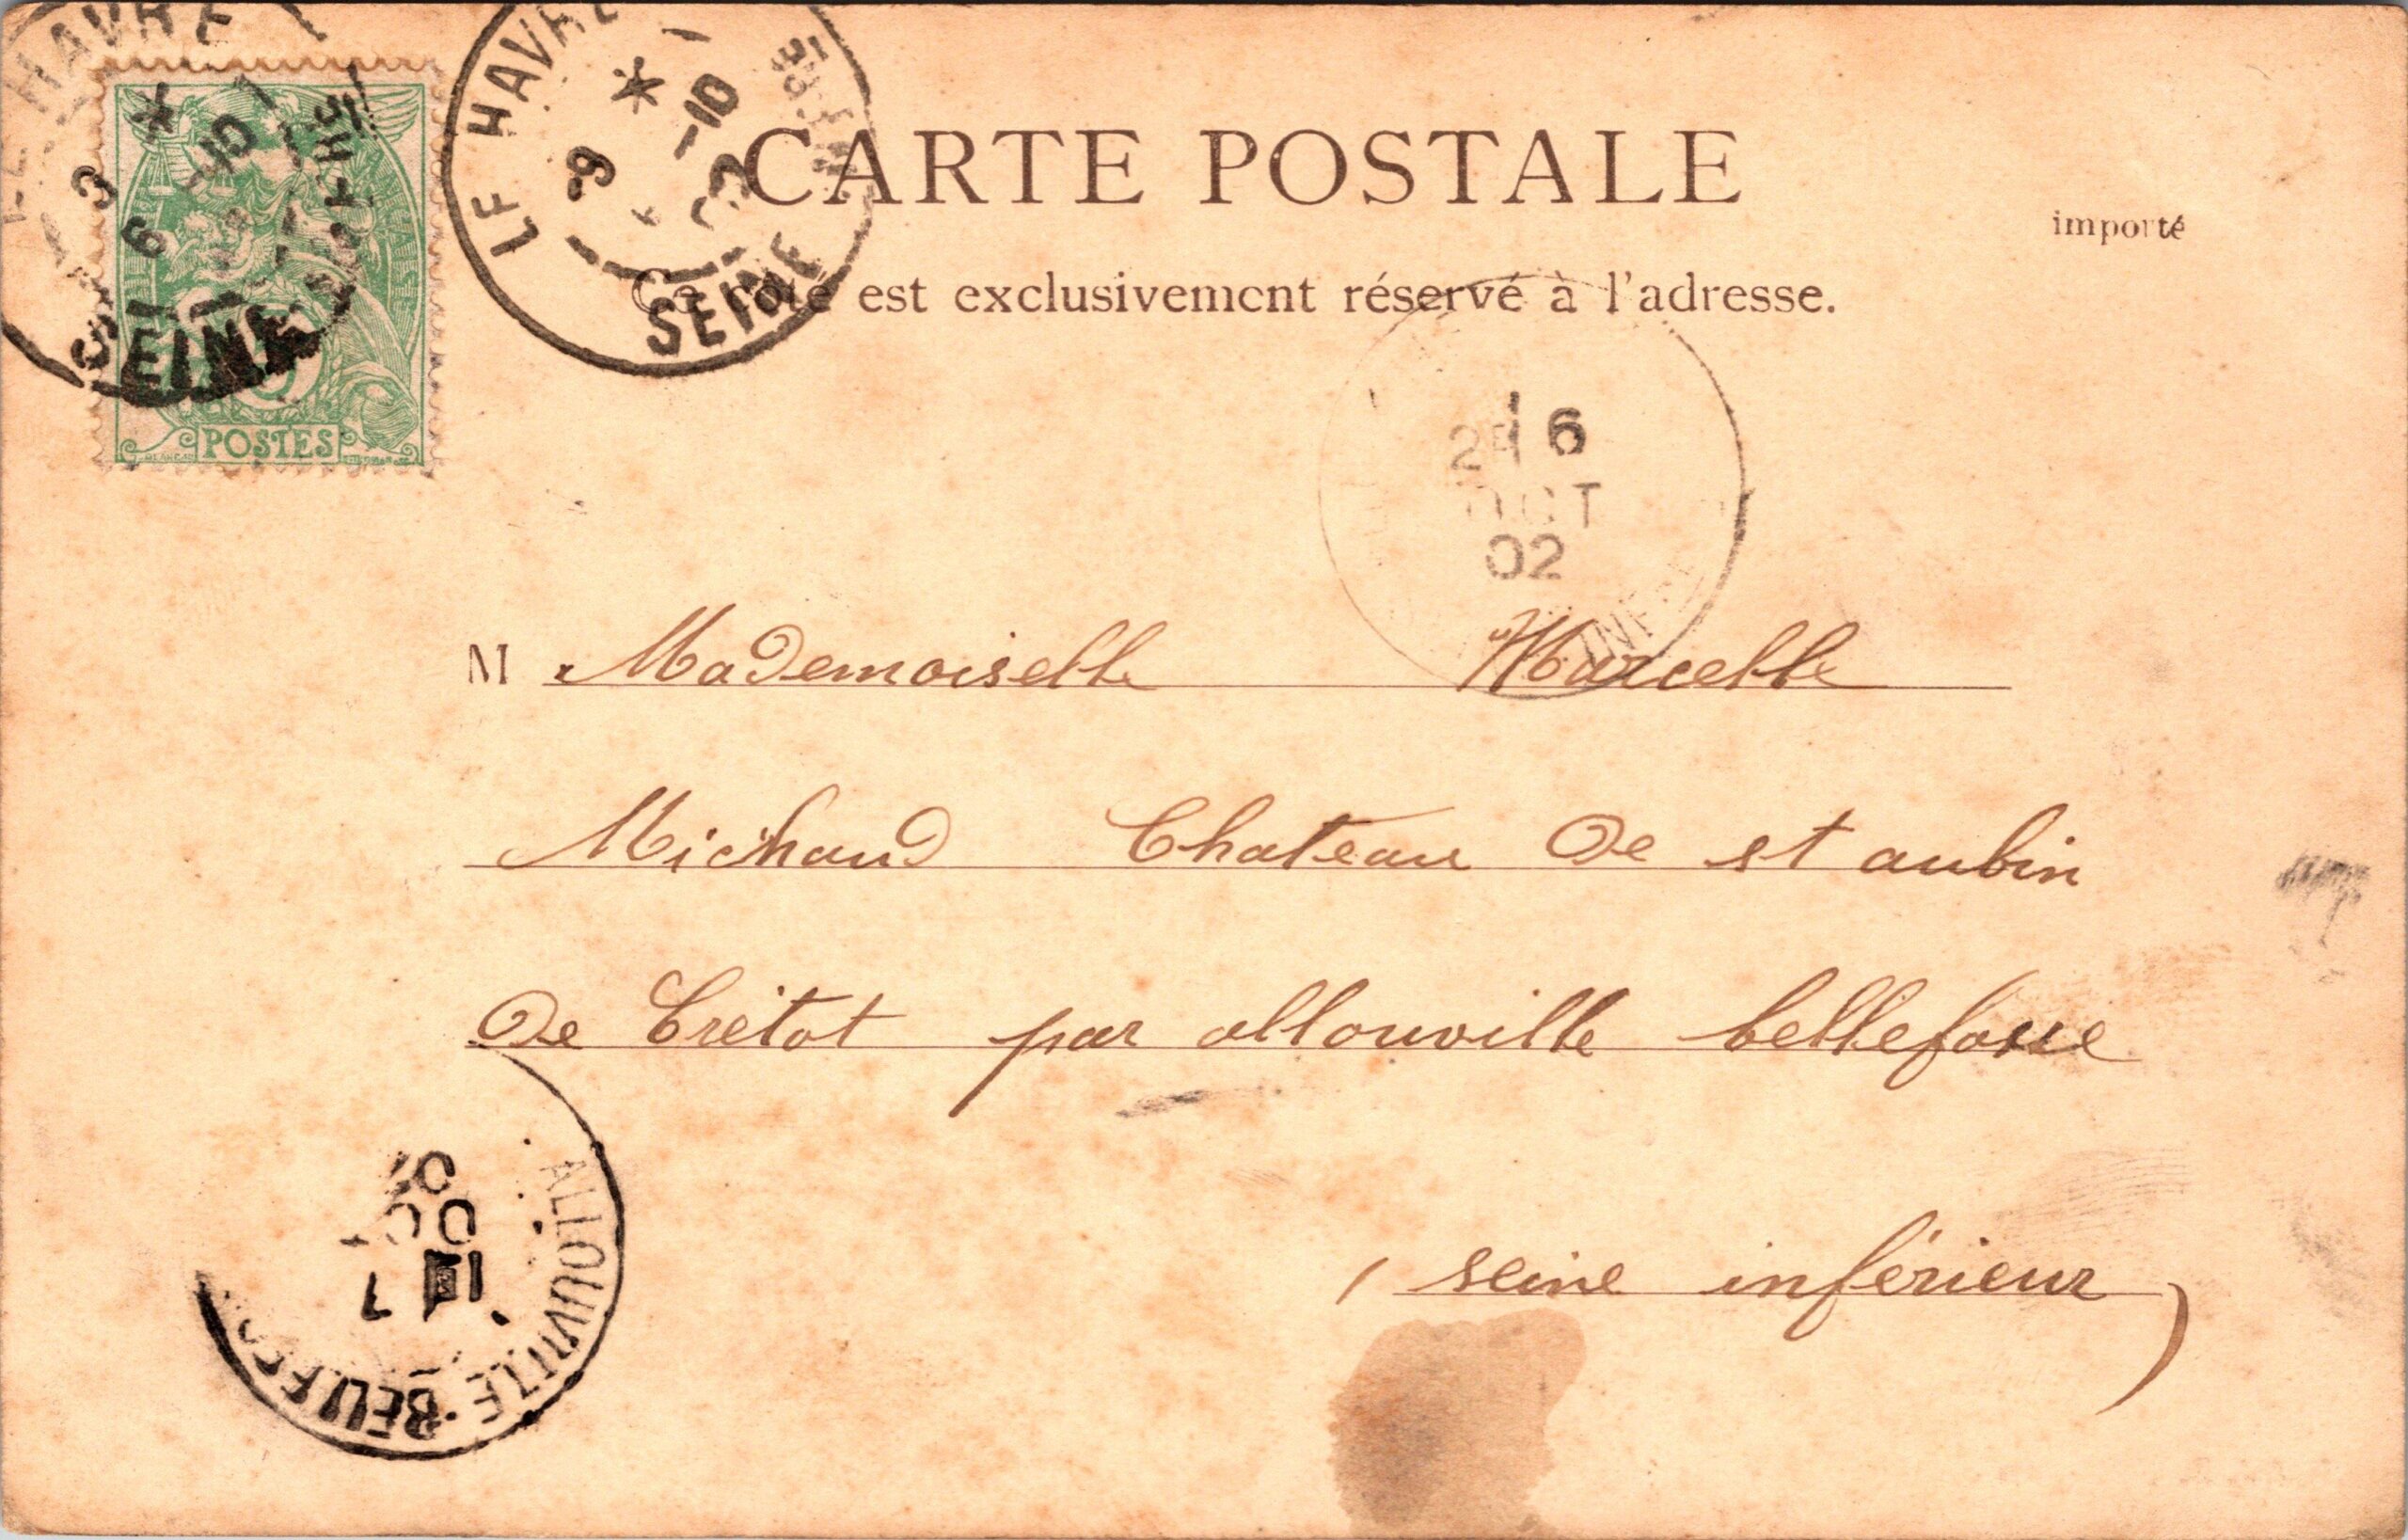 LE HAVRE
SEINE
3
6
-10
POSTES
LE HAVRE
6
-10
SEINE
CARTE POSTALE
importé
Ce côté est exclusivement réservé à l'adresse.
6
OCT
02
M Mademoiselle Marcelle
Michaud Chateau De st aubin
De Cretot par allouville bellefosse
( seine inférieur )
OCT
7
ALLOUVILLE-BELLEFO